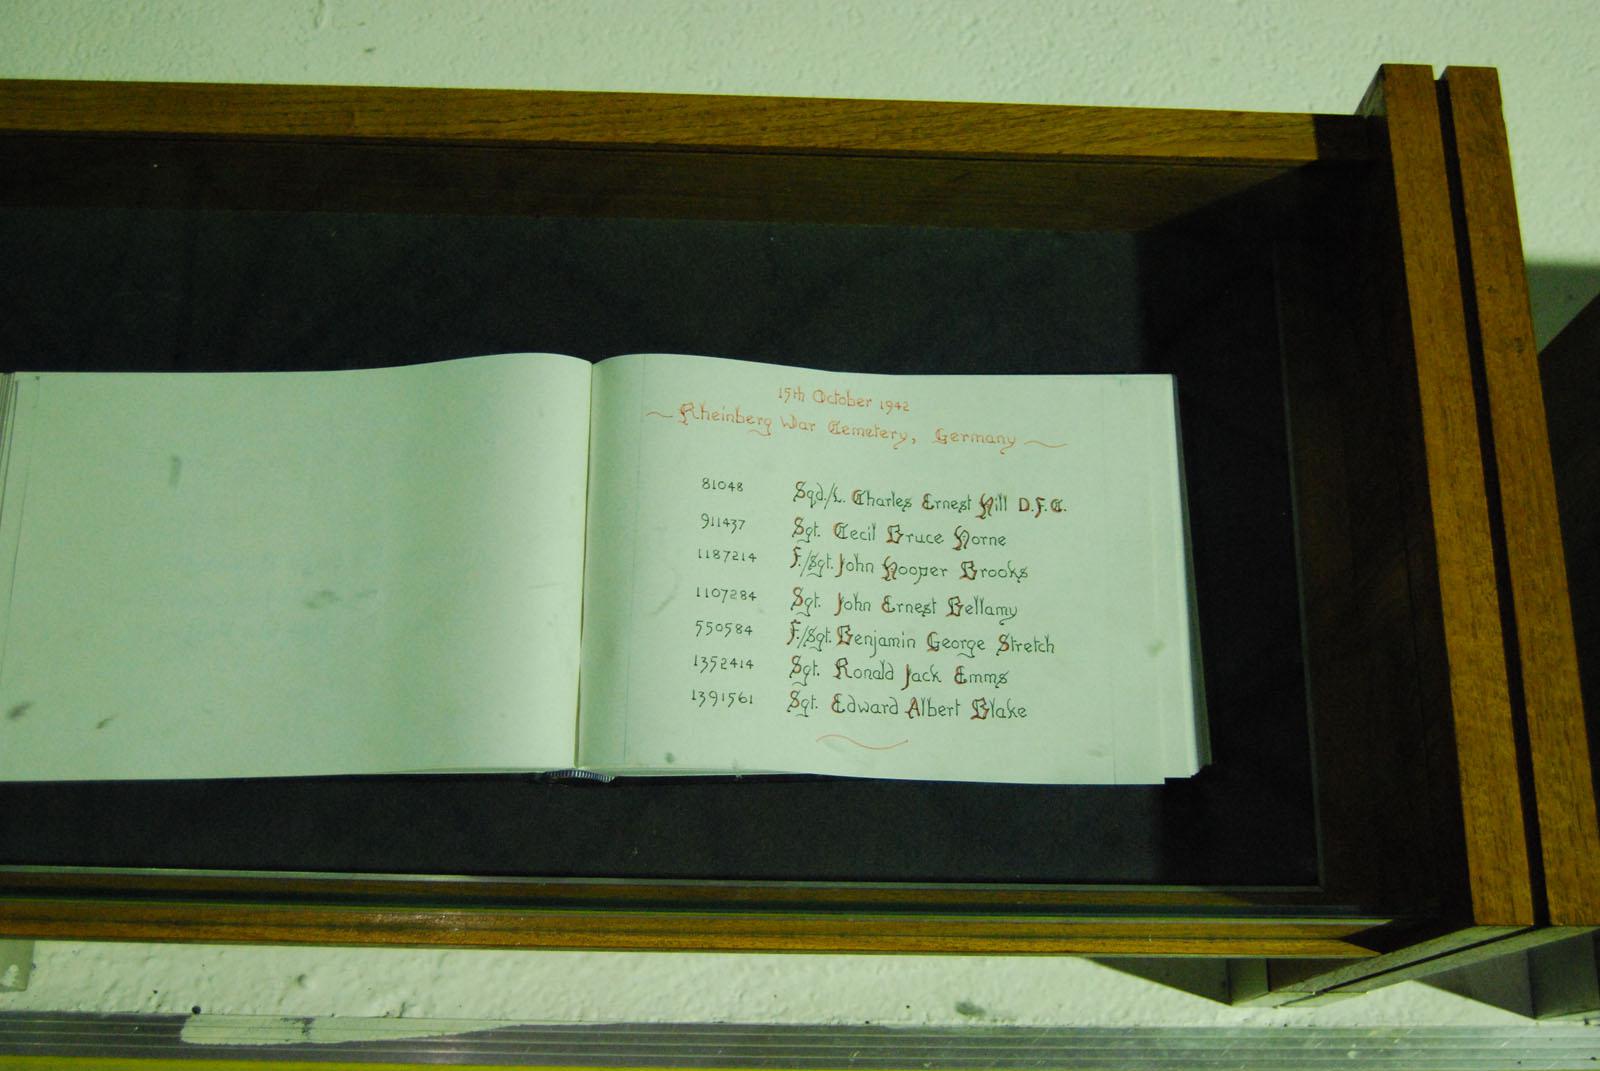 15th October 1942
Rheinberg War Cemetery, Germany
81048 Sqd./L. Charles Ernest Hill D.F.C.
911437 Sgt. Cecil Bruce Horne
1187214 F./Sgt. John Hooper Brooks
1107284 Sgt. John Ernest Bellamy
550584 F./Sgt. Benjamin George Stretch
1352414 Sgt. Ronald Jack Emms
1391561 Sgt. Edward Albert Blake